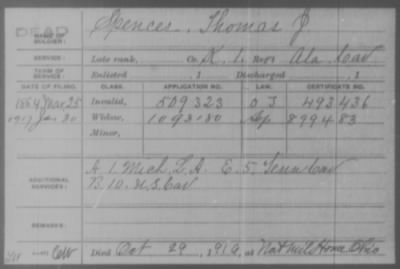 DEAD
NAME OF SOLDIER: Spencer, Thomas J
SERVICE: Late rank, Co. K, 1 Reg't Ala Cav
TERM OF SERVICE: Enlisted , 1 Discharged , 1
DATE OF FILING. CLASS. APPLICATION NO. LAW. CERTIFICATE NO.
1884 Mar 25 Invalid, 509323 O J 493436
1917 Jan 30 Widow, 1093180 Ap 899483
Minor,
ADDITIONAL SERVICES: A 1 Mich. L.A. E. 5. Tenn Cav
B. 10. U.S. Cav
REMARKS:
Died Oct 29, 1916, at Nat Mil Home Ohio